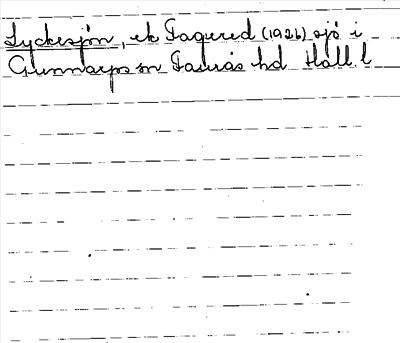 Lyckesjön, ek Fagered (1926) sjö i
Gunnarps sn Faurås hd Hall l